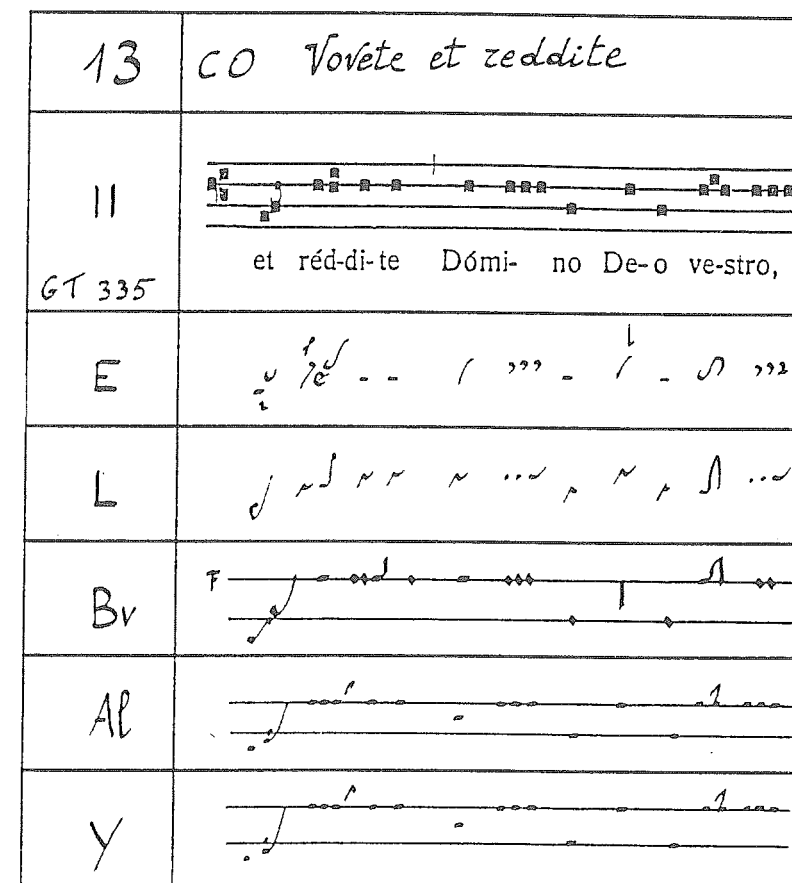 13 CO Vovete et reddite
II
GT 335
et réd-di-te Dómi- no De-o ve-stro,
E
L
Bv
F
Al
Y